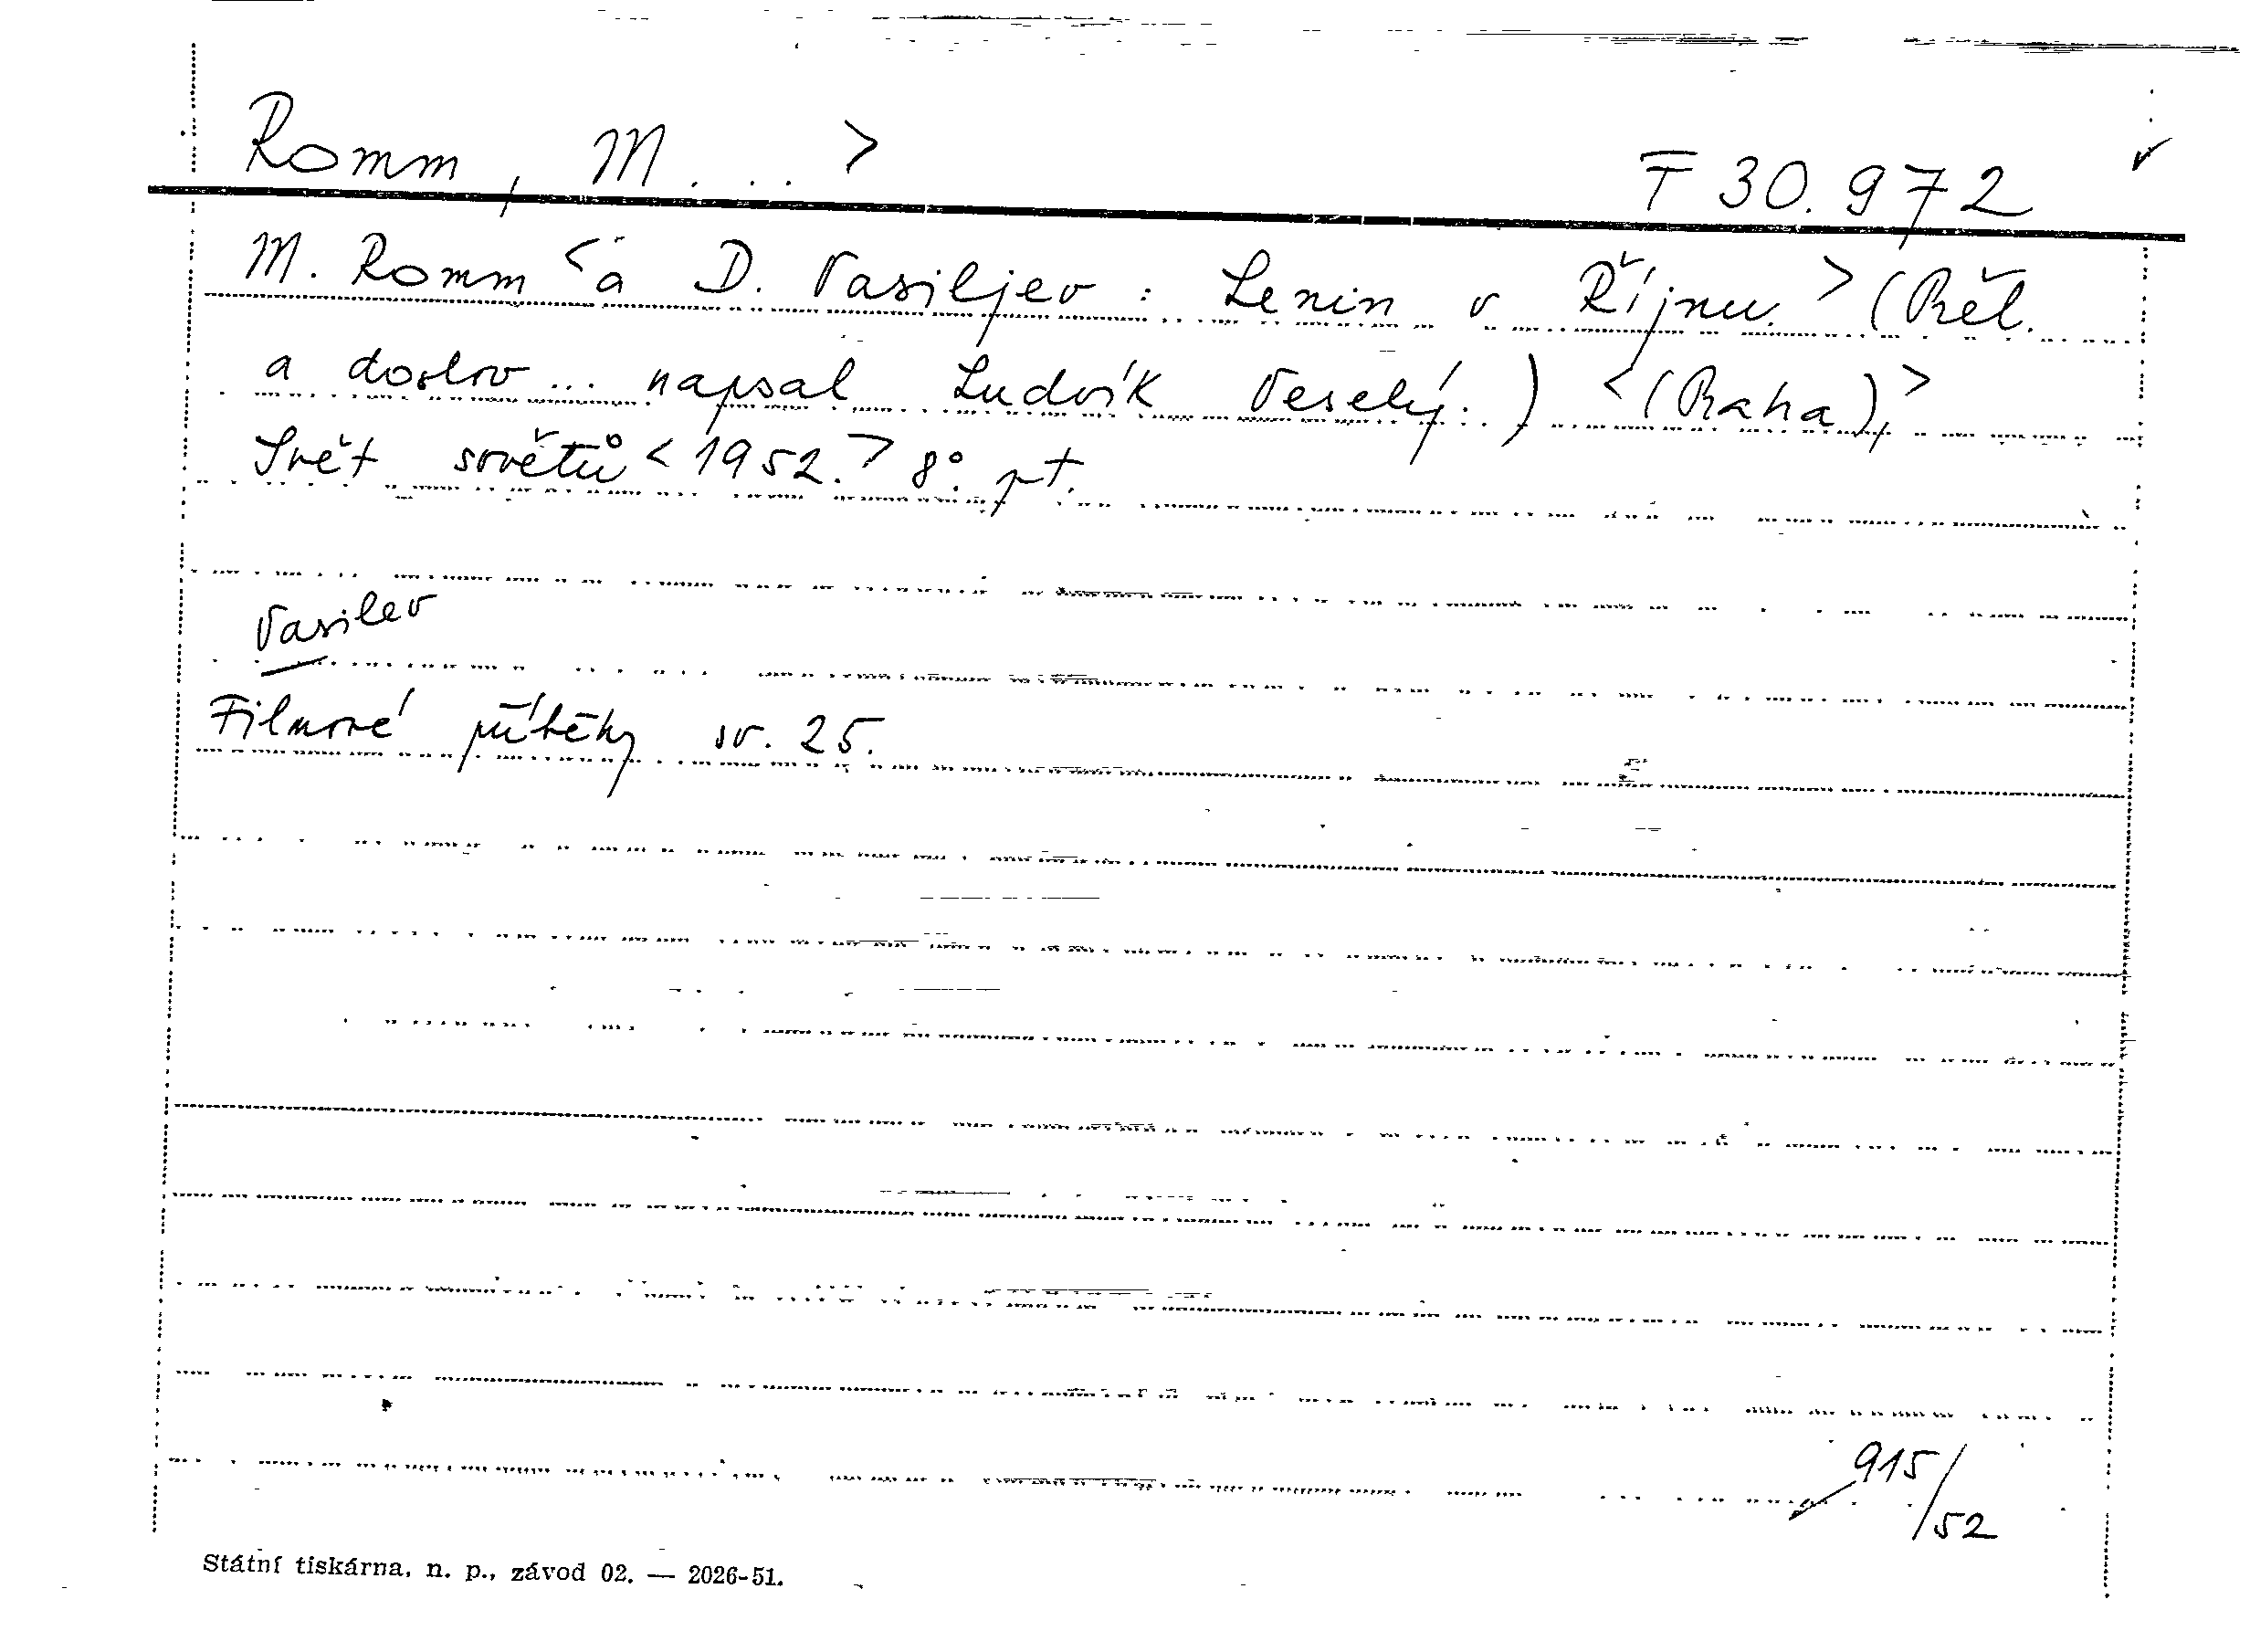 Romm, M. . . >
F 30.972
M. Romm < a D. Vasiljev : Lenin v Říjnu. > (Přel.
a doslov ... napsal Ludvík Veselý.) < (Praha), >
Svět sovětů < 1952. > 8°. pt.
Vasilev
Filmové příběhy sv. 25.
915/52
Státní tiskárna, n. p., závod 02. — 2026-51.